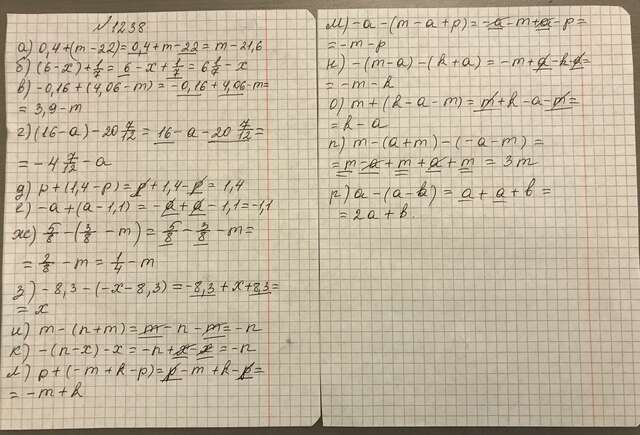 №1238
а) 0,4+(m-22)=0,4+m-22=m-21,6
б) (6-x)+1/7=6-x+1/7=6 1/7-x
в) -0,16+(4,06-m)=-0,16+4,06-m=
=3,9-m
г) (16-a)-20 7/12=16-a-20 7/12=
=-4 7/12-a
д) p+(1,4-p)=p+1,4-p=1,4
г) -a+(a-1,1)=-a+a-1,1=-1,1
ж) 5/8-(3/8-m)=5/8-3/8-m=
=2/8-m=1/4-m
з) -8,3-(-x-8,3)=-8,3+x+8,3=
=x
и) m-(n+m)=m-n-m=-n
к) -(n-x)-x=-n+x-x=-n
л) p+(-m+k-p)=p-m+k-p=
=-m+k
м) -a-(m-a+p)=-a-m+a-p=
=-m-p
н) -(m-a)-(k+a)=-m+a-k-a=
=-m-k
о) m+(k-a-m)=m+k-a-m=
=k-a
п) m-(a+m)-(-a-m)=
=m-a+m+a+m=3m
р) a-(a-b)=a+a+b=
=2a+b.